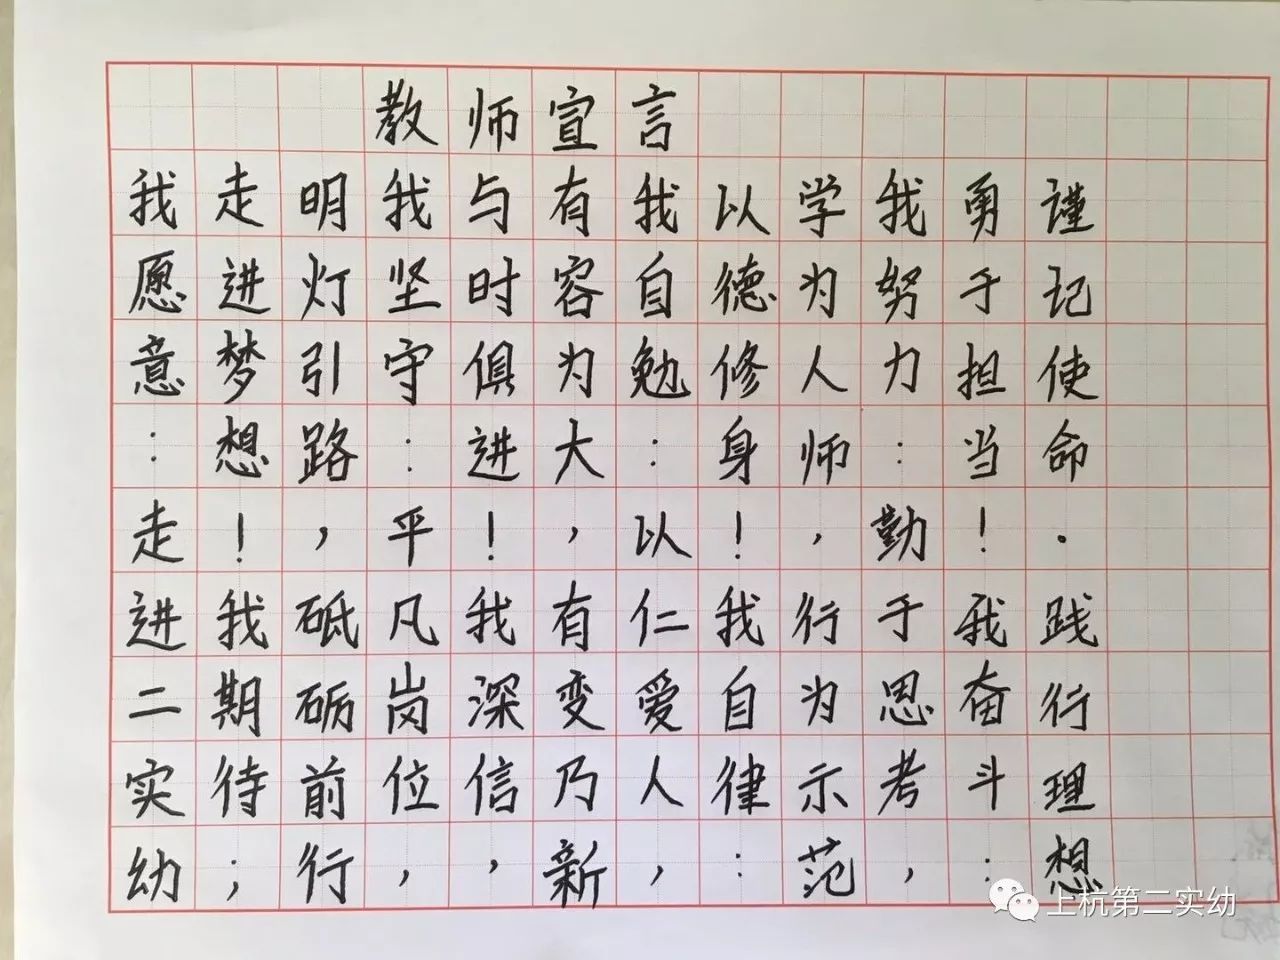 教师宣言
我愿意：走进二实幼
走进梦想！我期待；
明灯引路，砥砺前行
我坚守：平凡岗位，
与时俱进！我深信，
有容为大，有变乃新
我自勉：以仁爱人，
以德修身！我自律：
学为人师，行为示范
我努力：勤于思考，
勇于担当！我奋斗：
谨记使命.践行理想
上杭第二实幼